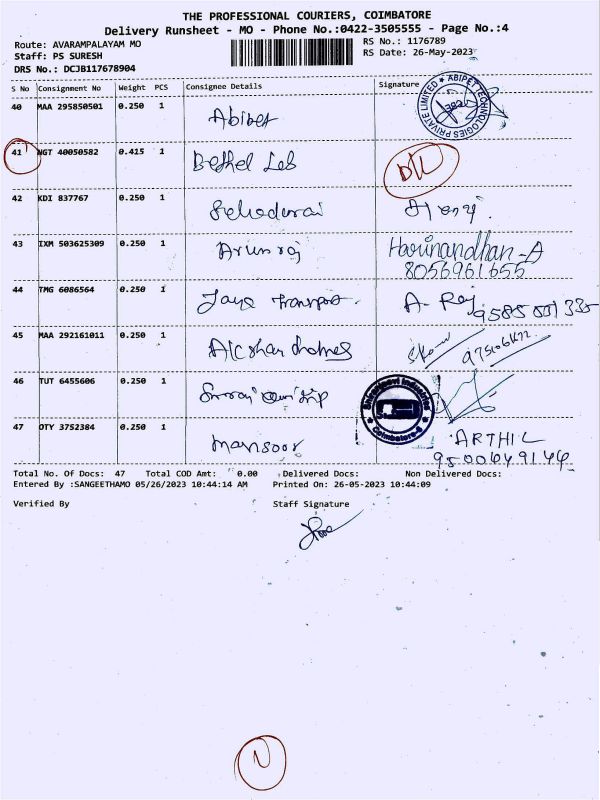 THE PROFESSIONAL COURIERS, COIMBATORE
Delivery Runsheet - MO - Phone No.:0422-3505555 - Page No.:4
Route: AVARAMPALAYAM MO
RS No.: 1176789
Staff: PS SURESH
RS Date: 26-May-2023
DRS No.: DCJB117678904
S No Consignment No Weight PCS Consignee Details Signature
ABIPET TECHNOLOGIES PRIVATE LIMITED
40 MAA 295850501 0.250 1 Abipet
41 NGT 40050582 0.415 1 Bethel Lab
42 KDI 837767 0.250 1
43 IXM 503625309 0.250 1 Arunraj Harinandhan-A
8056961655
44 TMG 6086564 0.250 1 Jaya Transport. A. Raj
45 MAA 292161011 0.250 1 Akshar homes
46 TUT 6455606 0.250 1
Industries
Coimbatore-6
47 OTY 3752384 0.250 1 Mansoor ARTHI L
9500649144
Total No. Of Docs: 47 Total COD Amt: 0.00 Delivered Docs: Non Delivered Docs:
Entered By :SANGEETHAMO 05/26/2023 10:44:14 AM Printed On: 26-05-2023 10:44:09
Verified By Staff Signature
N